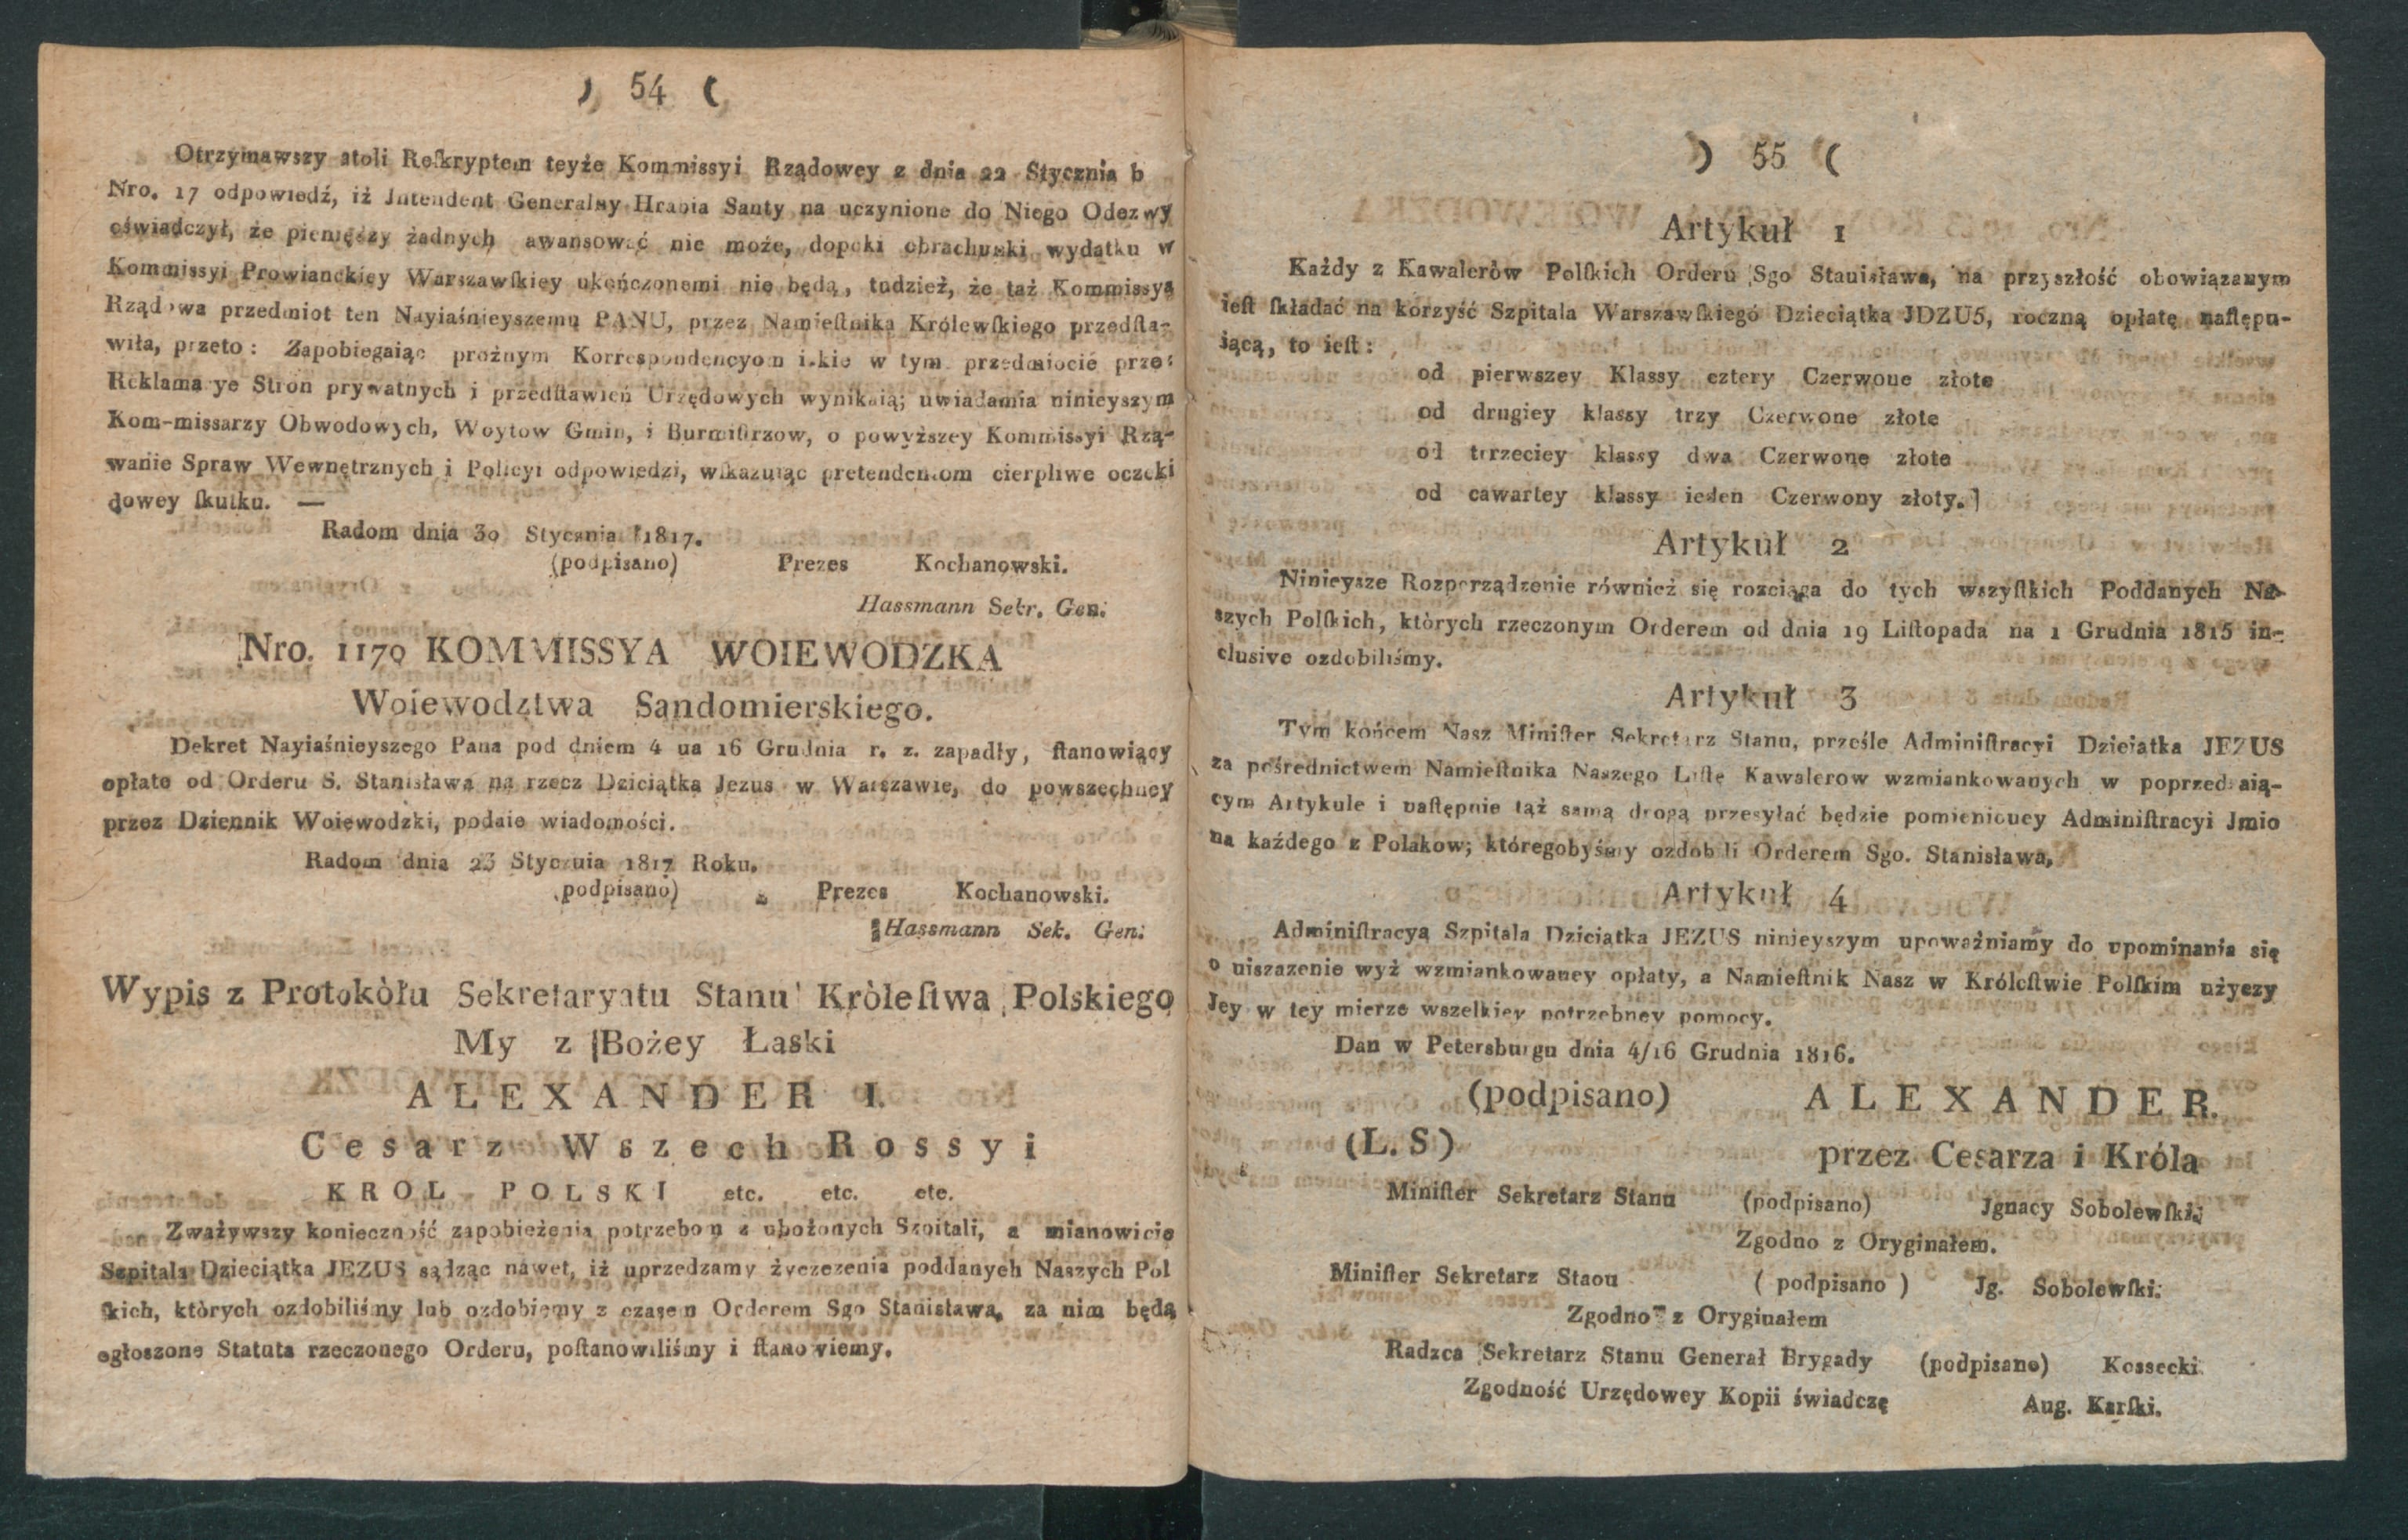 ) 54 (
Otrzymawszy atoli Reſkryptem teyże Kommissyi Rządowey z dnia 22 Stycznia b
Nro. 17 odpowiedź, iż Jntendent Generalny Hrabia Santy na uczynione do Niego Odezwy
oświadczył, że pieniędzy żadnych awansować nie może, dopoki obrachunki wydatku w
Kommissyi Prowianckiey Warszawſkiey ukończonemi nie będą, tudzież, że taż Kommissya
Rządowa przedmiot ten Nayiaśnieyszemu PANU, przez Namieſtnika Królewſkiego przedſta-
wiła, przeto: Zapobiegaiąc prożnym Korrespondencyom iakie w tym przedmiocie prze:
Reklamacye Stron prywatnych i przedſtawień Urzędowych wynikaią; uwiadamia ninieyszym
Kom-missarzy Obwodowych, Woytow Gmin, i Burmiſtrzow, o powyższey Kommissyi Rzą-
wanie Spraw Wewnętrznych i Policyi odpowiedzi, wſkazuiąc pretendentom cierpliwe oczeki
dowey ſkutku. —
Radom dnia 30 Stycznia 1817.
(podpisano) Prezes Kochanowski.
Hassmann Sekr. Gen.
Nro. 1170 KOMMISSYA WOIEWODZKA
Woiewodztwa Sandomierskiego.
Dekret Nayiaśnieyszego Pana pod dniem 4 ua 16 Grudnia r. z. zapadły, ſtanowiący
opłate od Orderu S. Stanisława na rzecz Dziciątka Jezus w Warszawie, do powszechney
przez Dziennik Woiewodzki, podaie wiadomości.
Radom dnia 23 Stycznia 1817 Roku.
podpisano) Prezes Kochanowski.
Hassmann Sek. Gen:
Wypis z Protokòłu Sekretaryatu Stanu Kròleſtwa Polskiego
My z Bożey Łaski
ALEXANDER I.
Cesarz Wszech Rossyi
KROL POLSKI etc. etc. ete.
Zważywszy konieczność zapobieżenia potrzebom z ubożonych Szpitali, a mianowicie
Szpitala Dzieciątka JEZUS sądząc nawet, iż uprzedzamy życzezenia poddanych Naszych Pol
ſkich, których ozdobiliśmy lub ozdobiemy z czasem Orderem Sgo Stanisława, za nim będą
ogłoszone Statuta rzeczonego Orderu, poſtanowiliśmy i ſtanowiemy.
) 55 (
Artykuł 1
Każdy z Kawalerów Polſkich Orderu Sgo Stauisława, na przyszłość obowiązanym
ieſt ſkładać na korzyść Szpitala Warszawſkiego Dzieciątka JDZU5, roczną opłatę naſtępu-
iącą, to ieſt:
od pierwszey Klassy cztery Czerwone złote
od drugiey klassy trzy Czerwone złote
od trrzeciey klassy dwa Czerwone złote
od cawartey klassy ieden Czerwony złoty.
Artykuł 2
Ninieysze Rozporządzenie również się rozciąga do tych wszyſtkich Poddanych Na-
szych Polſkich, których rzeczonym Orderem od dnia 19 Liſtopada na 1 Grudnia 1815 in-
clusive ozdobiliśmy.
Artykuł 3
Tym końcem Nasz Miniſter Sekretarz Stanu, prześle Adminiſtracyi Dzieiątka JEZUS
za pośrednictwem Namieſtnika Naszego Liſtę Kawalerow wzmiankowanych w poprzedzaią-
cym Artykule i naſtępnie tąż samą drogą przesyłać będzie pomienioney Adminiſtracyi Jmio
na każdego z Polakow; któregobyśmy ozdobili Orderem Sgo. Stanisława,
Artykuł 4
Adminiſtracyą Szpitala Dziciątka JEZUS ninieyszym upoważniamy do upominania się
o uiszazenie wyż wzmiankowaney opłaty, a Namieſtnik Nasz w Króleſtwie Polſkim użyczy
Jey w tey mierze wszelkiey potrzebney pomocy.
Dan w Petersburgu dnia 4/16 Grudnia 1816.
(podpisano) ALEXANDER.
(L. S) przez Cesarza i Króla
Miniſter Sekretarz Stanu (podpisano) Jgnacy Sobolewſki;
Zgodno z Oryginałem.
Miniſter Sekretarz Staou ( podpisano ) Jg. Sobolewſki.
Zgodno z Oryginałem
Radzca Sekretarz Stanu Generał Brygady (podpisano) Kossecki.
Zgodność Urzędowey Kopii świadczę Aug. Karſki.